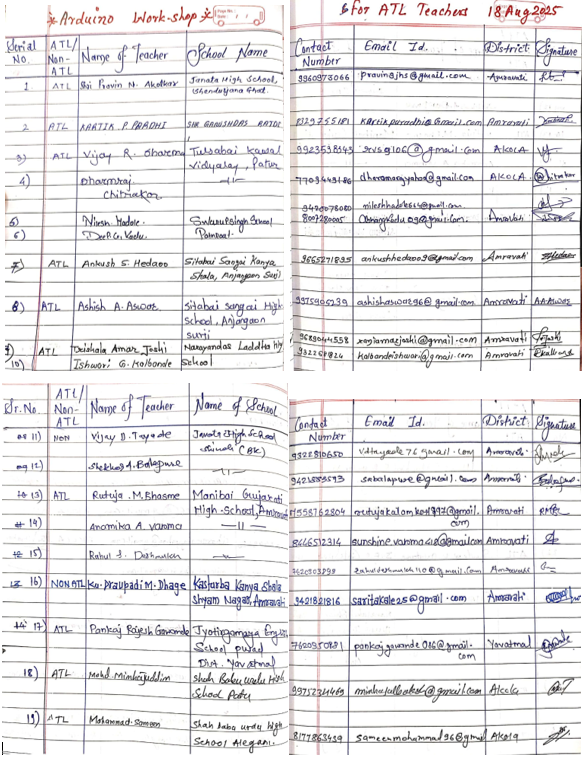 * Arduino Work-shop *
For ATL Teachers 18 Aug 2025
Serial No. ATL/ Non-ATL Name of Teacher School Name Contact Number Email Id. District Signature
1 ATL Sri Pravin N. Akotkar Janata High School, Ghat. 9960973066 pravinsjhs@gmail.com Amravati
2 ATL KARTIK P. PRADHI SHR GANESHDAS 8329755181 kartikparadhi@Gmail.com Amravati
3) ATL Vijay R. Tulsabai kawal Vidyalay, Patur 9923538943 @gmail.com AKOLA
4) Dharmraj Chitrakar —||— 7709449186 dharamarajyahoo@gmail.com AKOLA
5) Nilesh Hadole. School 9420078080
6) Deep G. Kadu. 8007280005 Amravati
7) ATL Ankush S. Hedaoo Sitabai Sangai Kanya Shala, Anjangaon Surji 9665271895 ankushhedaoo9@gmail.com Amravati
8) ATL Ashish A. Aswar Sitabai sangai High School, Anjangaon surji 9975906239 ashishaswar96@gmail.com Amravati A.A.Aswar
9) ATL Amar Joshi Narayandas Laddha High School 9689044558 Amravati
10) Ishwari G. Kalbande kalbandeishwari@gmail.com Amravati
Sr. No. ATL/ Non-ATL Name of Teacher Name of School Contact Number Email Id. District Signature
11) NON Vijay D. Tayade Janata High School (BK) 9322810650 Amravati
12) Shekhar Balapure —||— 9421889593 Amravati
13) ATL Rutuja . M. Bhasme Manibai Gujarati High-School, Amravati rutujakalamkar1997@gmail.com Amravati
14) Anamika A. Varma —||— 8666512314 sunshinevarma418@gmail.com Amravati
15) Rahul S. Deshmukh 7620503998 Amravati
16) NON ATL Ku. Draupadi M. Dhage Kasturba Kanya Shala Shyam Nagar, Amravati 9421821816 saritakale25@gmail.com Amravati
17) ATL Pankaj Rajesh Gawande Jyotirgamaya English School Dist. Yavatmal 7620950881 pankajgawande086@gmail.com Yavatmal
18) ATL Mohd. Minhajuddin Shah Babu urdu High School Patur 9975234469 Akola
19) ATL Mohammad. Sameen Shah baba urdu high School Alegaon. 8177863439 sameenmohammad96@gmail Akola